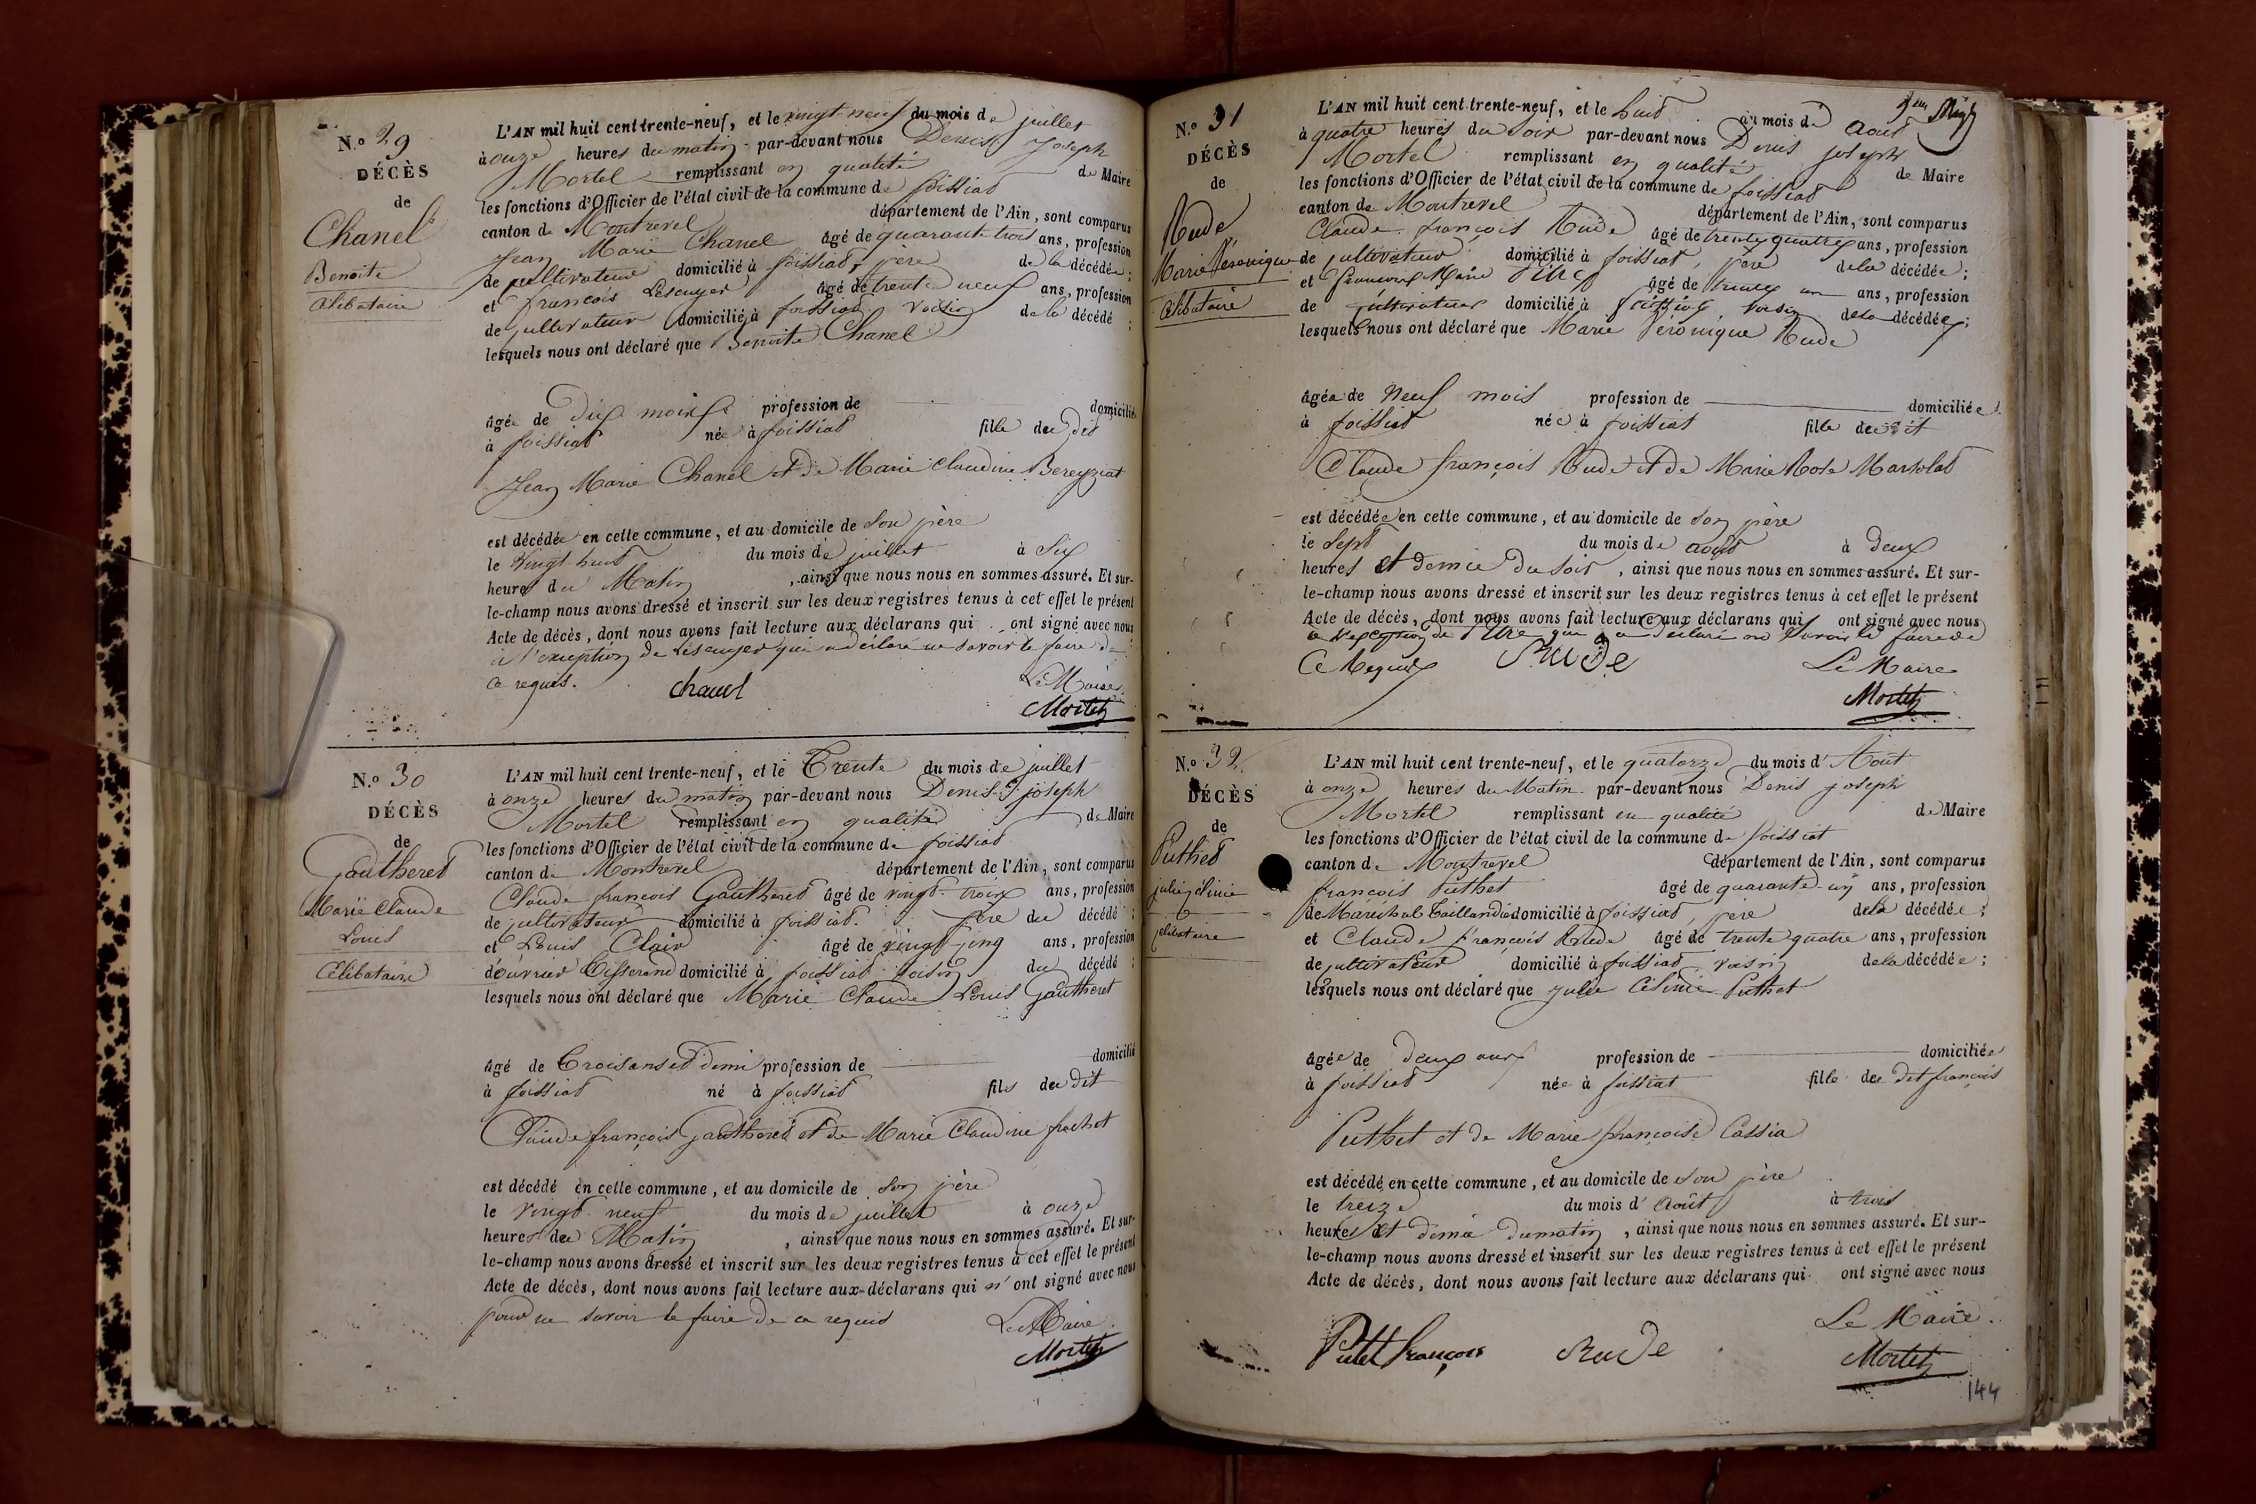 N.o 29
DÉCÈS
de
Chanel
Benoite
Célibataire
L'AN mil huit cent trente-neuf, et le vingt-neuf du mois de juillet
à onze heures du matin par-devant nous Denis Joseph
Mortel remplissant en qualité de Maire
les fonctions d'Officier de l'état civil de la commune de foissiat
canton de Montrevel département de l'Ain, sont comparus
Jean Marie Chanel âgé de quarante trois ans, profession
de cultivateur domicilié à foissiat, père de la décédée;
et françois Lescuyer âgé de trente neuf ans, profession
de cultivateur domicilié à foissiat voisin de la décédé;
lesquels nous ont déclaré que Benoite Chanel
âgée de dix mois profession de domiciliée
à foissiat née à foissiat fille du dit
Jean Marie Chanel et de Marie Claudine Bereyziat
est décédée en cette commune, et au domicile de son père
le vingt huit du mois de juillet à six
heures du Matin, ainsi que nous nous en sommes assuré. Et sur-
le-champ nous avons dressé et inscrit sur les deux registres tenus à cet effet le présent
Acte de décès, dont nous avons fait lecture aux déclarans qui ont signé avec nous
à l'exception de Lescuyer qui a déclaré ne savoir le faire de
ce requis. chanel Le Maire
Mortel
N.o 30
DÉCÈS
de
Gautheret
Marie Claude
Louis
Célibataire
L'AN mil huit cent trente-neuf, et le Trente du mois de juillet
à onze heures du matin par-devant nous Denis joseph
Mortel remplissant en qualité de Maire
les fonctions d'Officier de l'état civil de la commune de foissiat
canton de Montrevel département de l'Ain, sont comparus
Claude françois Gautheret âgé de vingt-trois ans, profession
de cultivateur domicilié à foissiat. père du décédé;
et Louis Clair âgé de vingt-cinq ans, profession
d'ouvrier Tisserand domicilié à foissiat voisin du décédé;
lesquels nous ont déclaré que Marie Claude Louis Gautheret
âgé de Trois ans et demi profession de domicilié
à foissiat né à foissiat fils du dit
Claude françois Gautheret et de Marie Claudine frachet
est décédé en cette commune, et au domicile de son père
le vingt-neuf du mois de juillet à onze
heures du Matin, ainsi que nous nous en sommes assuré. Et sur-
le-champ nous avons dressé et inscrit sur les deux registres tenus à cet effet le présent
Acte de décès, dont nous avons fait lecture aux déclarans qui n'ont signé avec nous
pour ne savoir le faire de ce requis Le Maire.
Mortel
N.o 31
DÉCÈS
de
Rude
Marie Véronique
Célibataire
L'AN mil huit cent trente-neuf, et le huit du mois de Aout
à quatre heures du soir par-devant nous Denis joseph
Mortel remplissant en qualité de Maire
les fonctions d'Officier de l'état civil de la commune de foissiat
canton de Montrevel département de l'Ain, sont comparus
Claude françois Rude âgé de trente quatre ans, profession
de cultivateur domicilié à foissiat, père de la décédée;
et Marie âgé de trente un ans, profession
de cultivateur domicilié à foissiat voisin de la décédée;
lesquels nous ont déclaré que Marie Véronique Rude
âgée de Neuf mois profession de domiciliée
à foissiat née à foissiat fille du dit
Claude françois Rude et de Marie Rose Marsolat
est décédée en cette commune, et au domicile de son père
le Sept du mois de août à deux
heures et demie du soir, ainsi que nous nous en sommes assuré. Et sur-
le-champ nous avons dressé et inscrit sur les deux registres tenus à cet effet le présent
Acte de décès, dont nous avons fait lecture aux déclarans qui ont signé avec nous
a l'exception de qui a déclaré ne savoir le faire de
Ce Requis Rude Le Maire
Mortel
N.o 32
DÉCÈS
de
Puthet
julie célinie
célibataire
L'AN mil huit cent trente-neuf, et le quatorze du mois d'Août
à onze heures du Matin par-devant nous Denis joseph
Mortel remplissant en qualité de Maire
les fonctions d'Officier de l'état civil de la commune de foissiat
canton de Montrevel département de l'Ain, sont comparus
françois Puthet âgé de quarante-un ans, profession
de Maréchal Taillandier domicilié à foissiat, père de la décédée;
et Claude françois Rude âgé de trente quatre ans, profession
de cultivateur domicilié à foissiat voisin de la décédée;
lesquels nous ont déclaré que julie Célinie Puthet
âgée de deux ans profession de domiciliée
à foissiat née à foissiat fille du dit françois
Puthet et de Marie françoise Cassia
est décédé en cette commune, et au domicile de son père
le treize du mois d'Août à trois
heures et demie du matin, ainsi que nous nous en sommes assuré. Et sur-
le-champ nous avons dressé et inscrit sur les deux registres tenus à cet effet le présent
Acte de décès, dont nous avons fait lecture aux déclarans qui ont signé avec nous
Le Maire.
Putet françois Rude Mortel
144